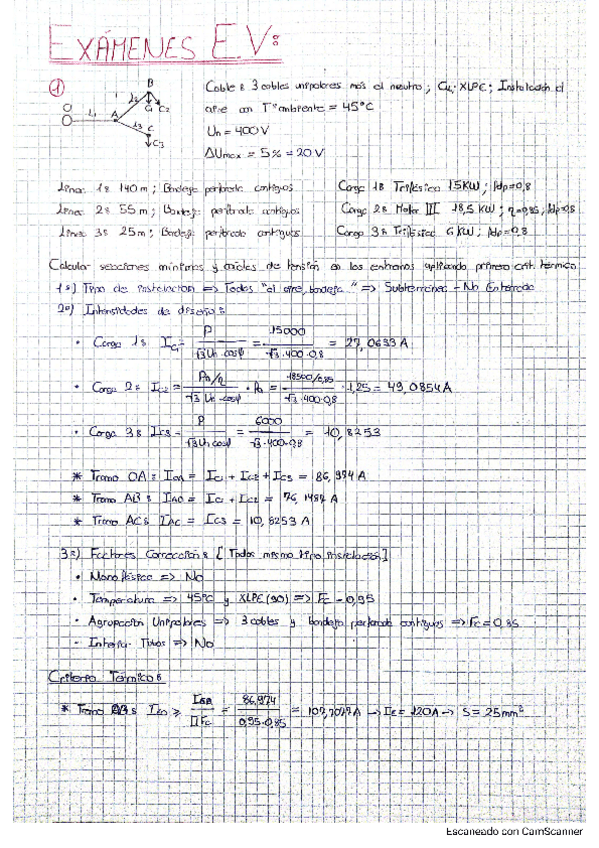 EXÁMENES E.V:
1
B
L2
C1 C2
L1
A
L3
C
C3
Cable: 3 cables unipolares más el neutro; Cu; XLPE; Instalación al
aire con Tª ambiente = 45ºC
Un = 400 V
ΔUmax = 5% = 20 V
Línea 1: 140 m; Bandeja perforada contiguos
Línea 2: 55 m; Bandeja perforada contiguos
Línea 3: 25 m; Bandeja perforada contiguos
Carga 1: Trifásica 15 KW; fdp=0,8
Carga 2: Motor III 18,5 KW; η=0,85; fdp=0,8
Carga 3: Trifásica 6 KW; fdp=0,8
Calcular secciones mínimas y caídas de tensión en los extremos aplicando primero crit. térmico
1º) Tipo de instalación => Todos "al aire, bandeja" => Subterránea - No Enterrada
2º) Intensidades de diseño:
• Carga 1: IC1 = P / √3·Un·cosφ = 15000 / √3·400·0,8 = 27,0633 A
• Carga 2: IC2 = Pn/η / √3·Un·cosφ · Pa = 18500/0,85 / √3·400·0,8 · 1,25 = 49,0854 A
• Carga 3: IC3 = P / √3 Un cosφ = 6000 / √3·400·0,8 = 10,8253
* Tramo OA: IOA = IC1 + IC2 + IC3 = 86,974 A
* Tramo AB: IAB = IC1 + IC2 = 76,1487 A
* Tramo AC: IAC = IC3 = 10,8253 A
3º) Factores Corrección: [Todos mismo tipo instalación]
• Monofásico => No
• Temperatura => 45ºC y XLPE (90) => Fc = 0,95
• Agrupación Unipolares => 3 cables y bandeja perforada contiguos => Fc = 0,85
• Interior Tubos => No
Criterio Térmico:
* Tramo : ≥ IOA / ΠFc = 86,974 / 0,95·0,85 = 107,7077 A → = 120A → S = 25mm²
Escaneado con CamScanner